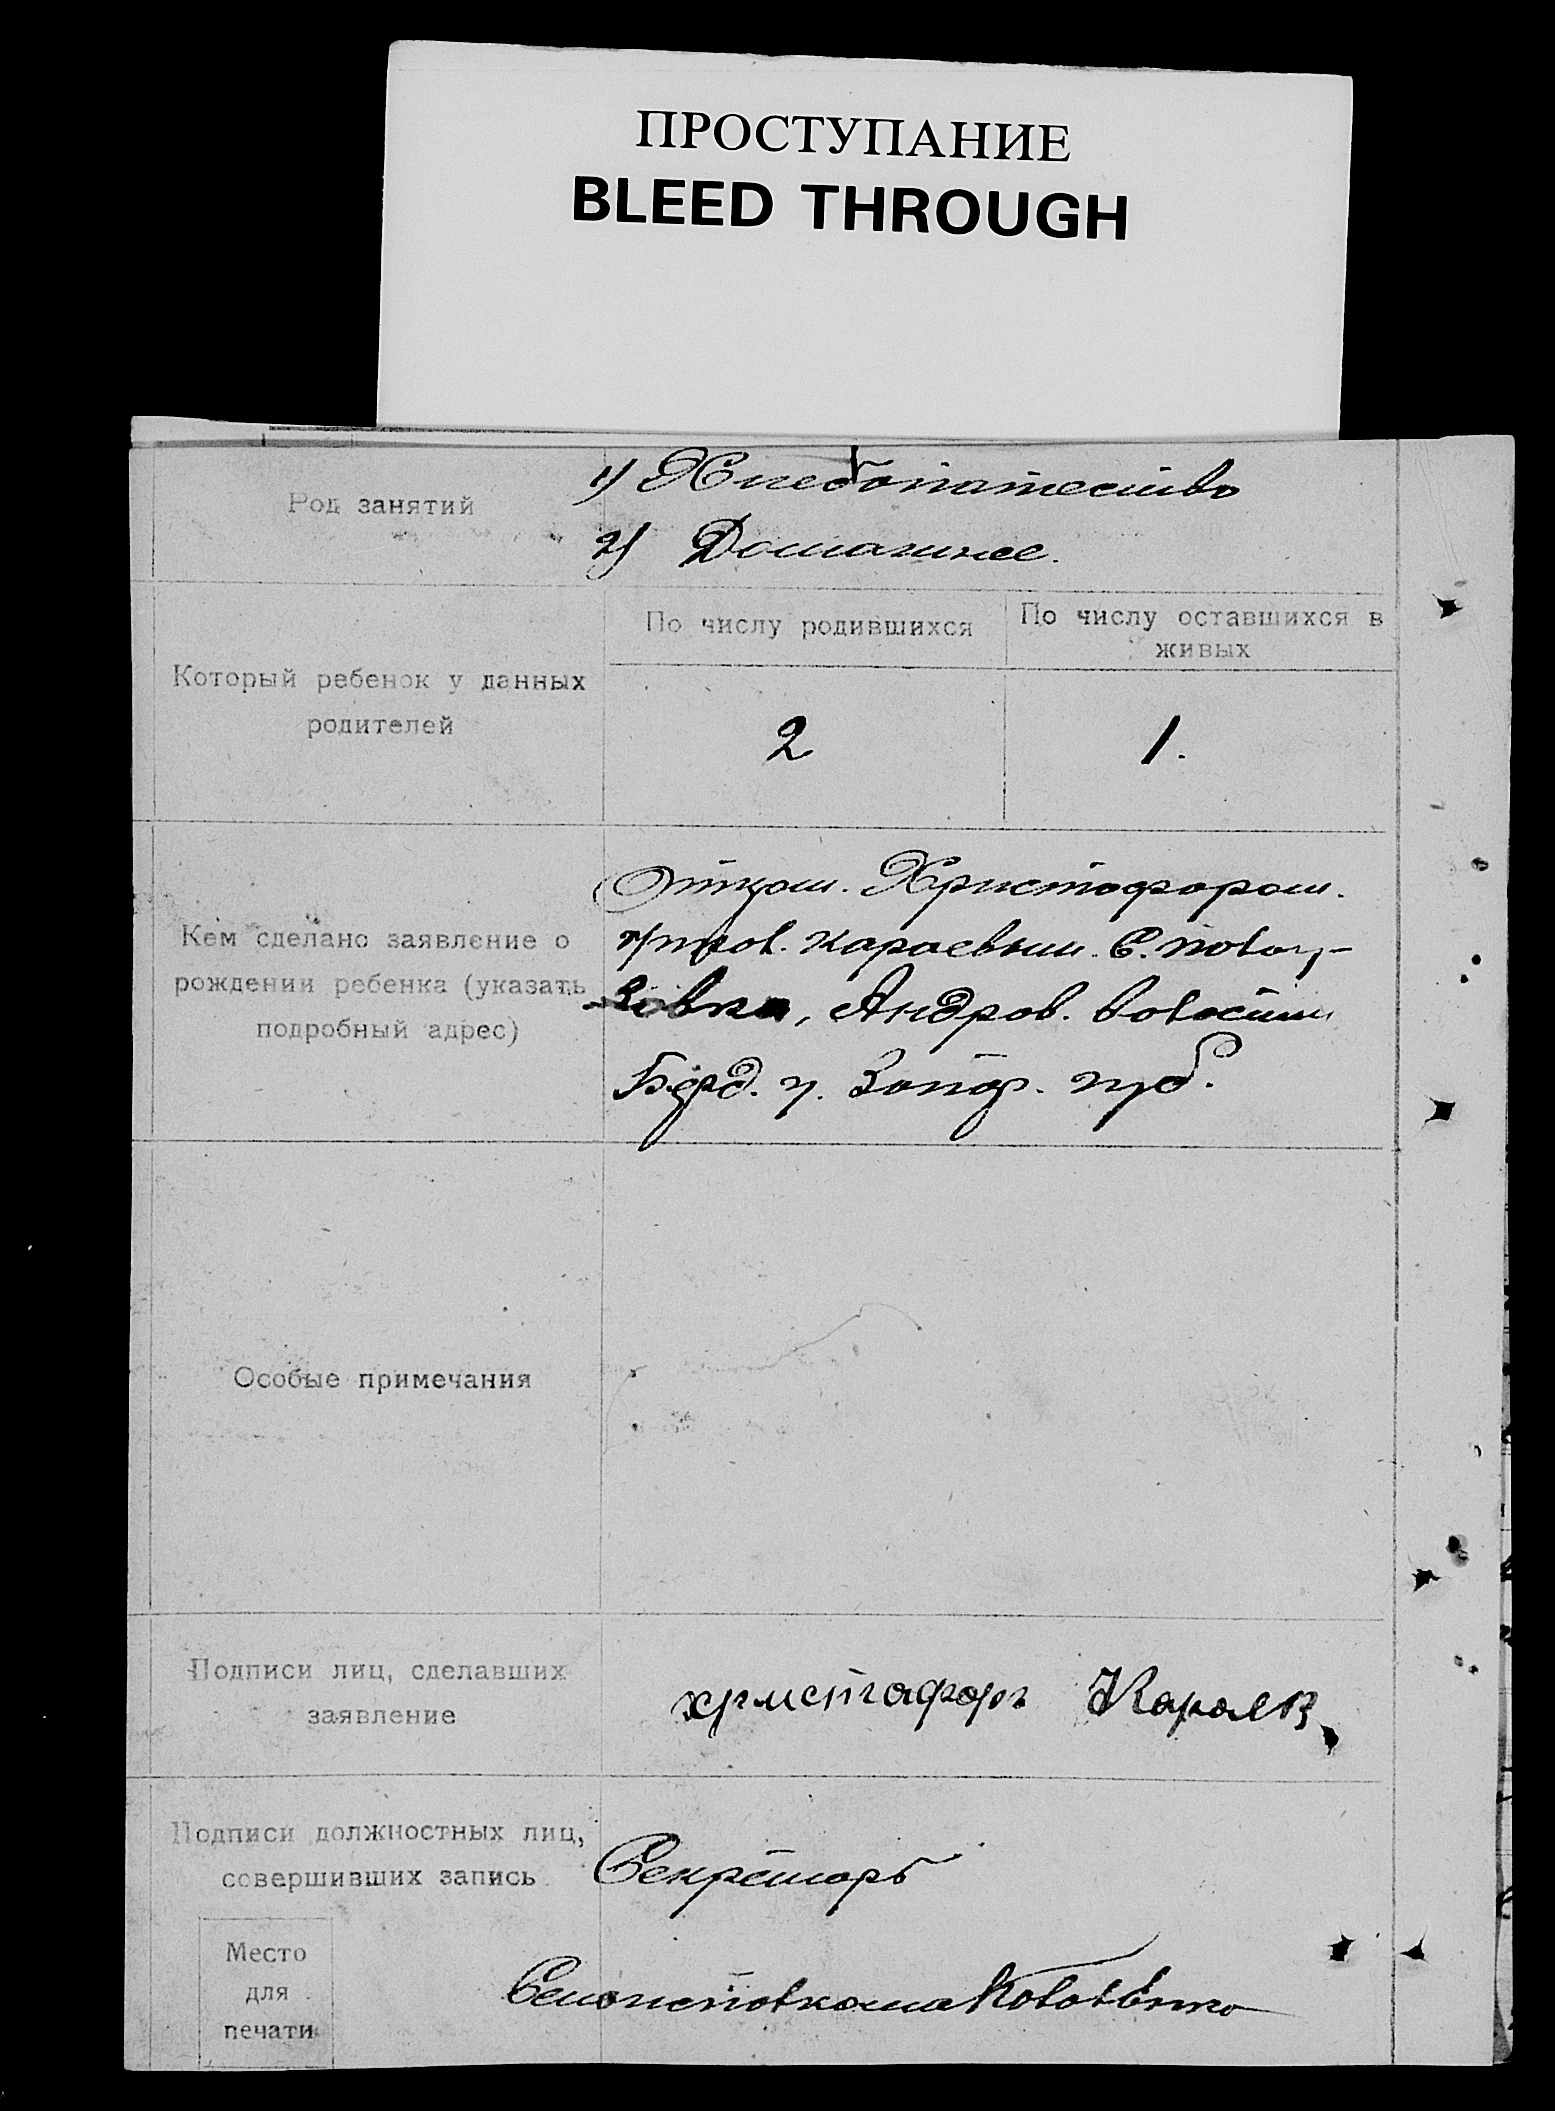 ПРОСТУПАНИЕ
BLEED THROUGH
Род занятий
1) Хлебопашество
2) Домашнее.
По числу родившихся
По числу оставшихся в
живых
Который ребенок у данных
родителей
2
1.
Отцом. Христофором.
Караевым. С.
Кем сделано заявление о
рождении ребенка (указать
подробный адрес)
Андров. волости
Берд. у. Запор. губ.
Особые примечания
Подписи лиц, сделавших
заявление
христафоръ Караев
Подписи должностных лиц,
совершивших запись
Секретарь
Место
для
печати